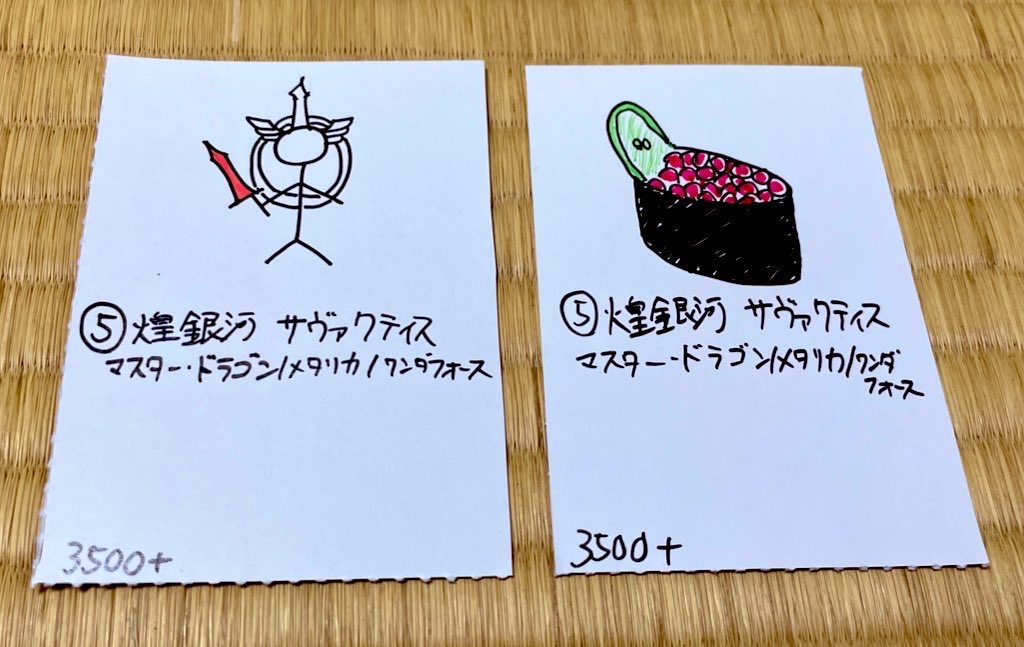 ⑤煌銀河 サヴァクティス
マスター・ドラゴン/メタリカ/ワンダフォース
3500+
⑤煌銀河 サヴァクティス
マスター・ドラゴン/メタリカ/ワンダ
フォース
3500+